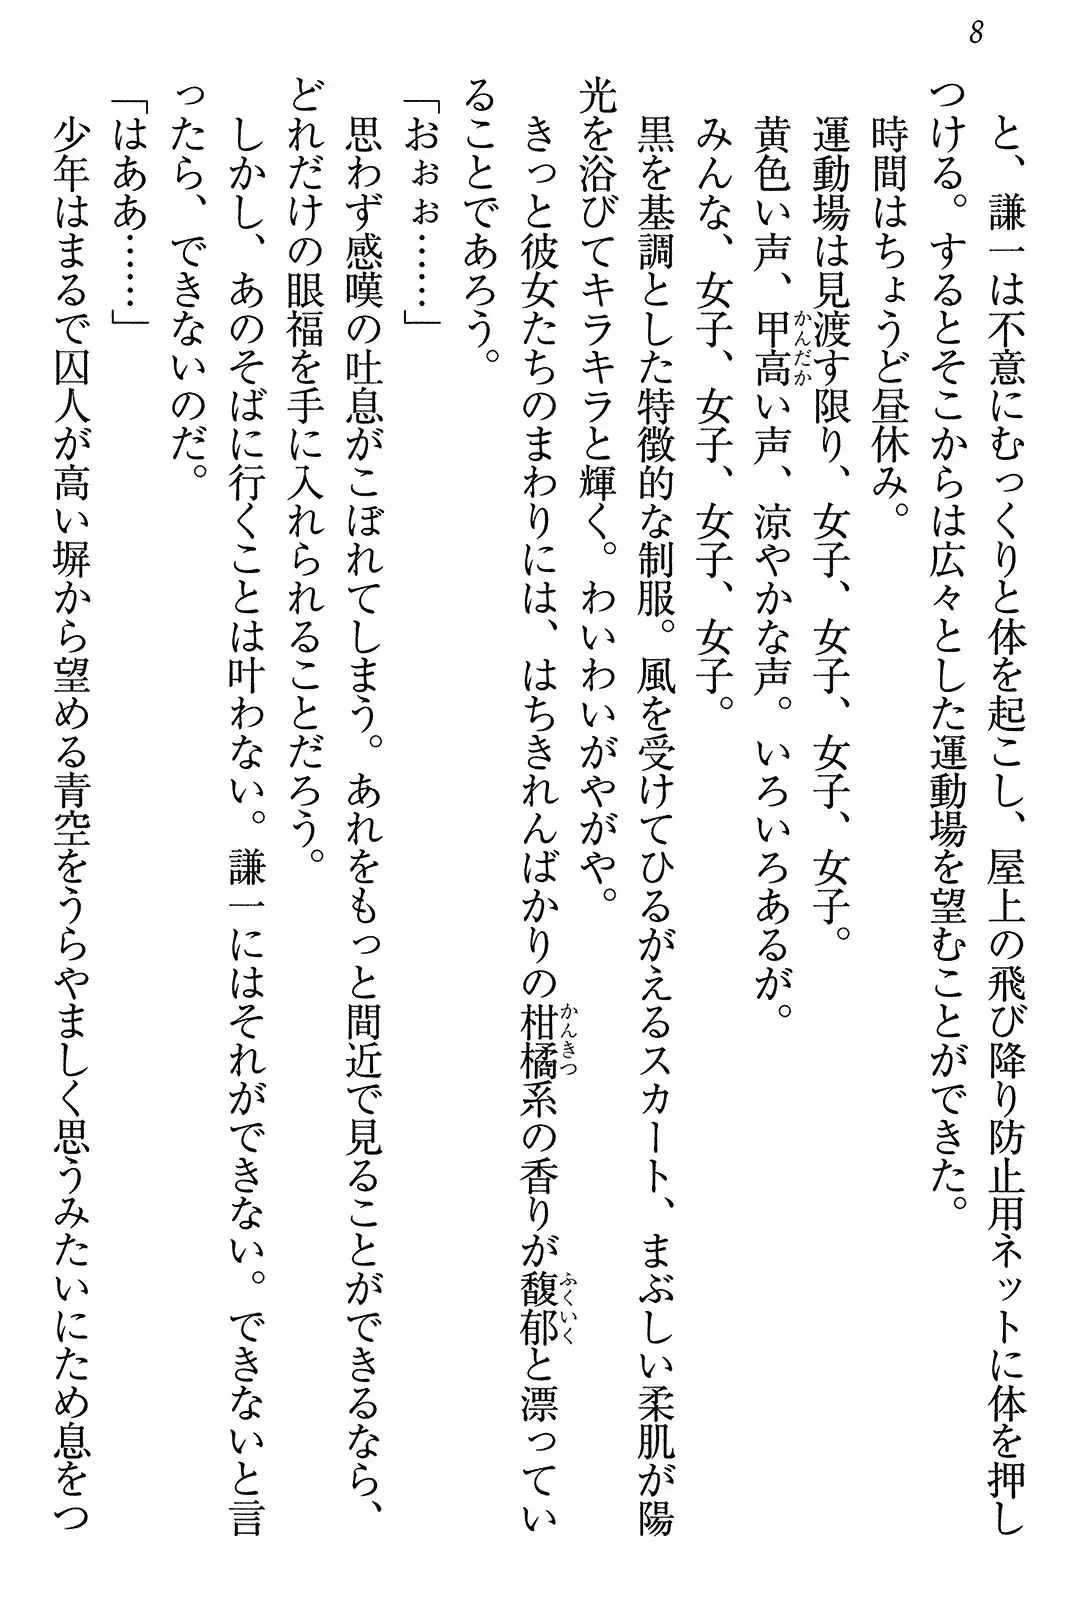 8
と、謙一は不意にむっくりと体を起こし、屋上の飛び降り防止用ネットに体を押し
つける。するとそこからは広々とした運動場を望むことができた。
時間はちょうど昼休み。
運動場は見渡す限り、女子、女子、女子、女子。
黄色い声、甲高い声、涼やかな声。いろいろあるが。
みんな、女子、女子、女子、女子。
黒を基調とした特徴的な制服。風を受けてひるがえるスカート、まぶしい柔肌が陽
光を浴びてキラキラと輝く。わいわいがやがや。
きっと彼女たちのまわりには、はちきれんばかりの柑橘系の香りが馥郁と漂ってい
ることであろう。
「おぉぉ……」
思わず感嘆の吐息がこぼれてしまう。あれをもっと間近で見ることができるなら、
どれだけの眼福を手に入れられることだろう。
しかし、あのそばに行くことは叶わない。謙一にはそれができない。できないと言
ったら、できないのだ。
「はああ……」
少年はまるで囚人が高い塀から望める青空をうらやましく思うみたいにため息をつ